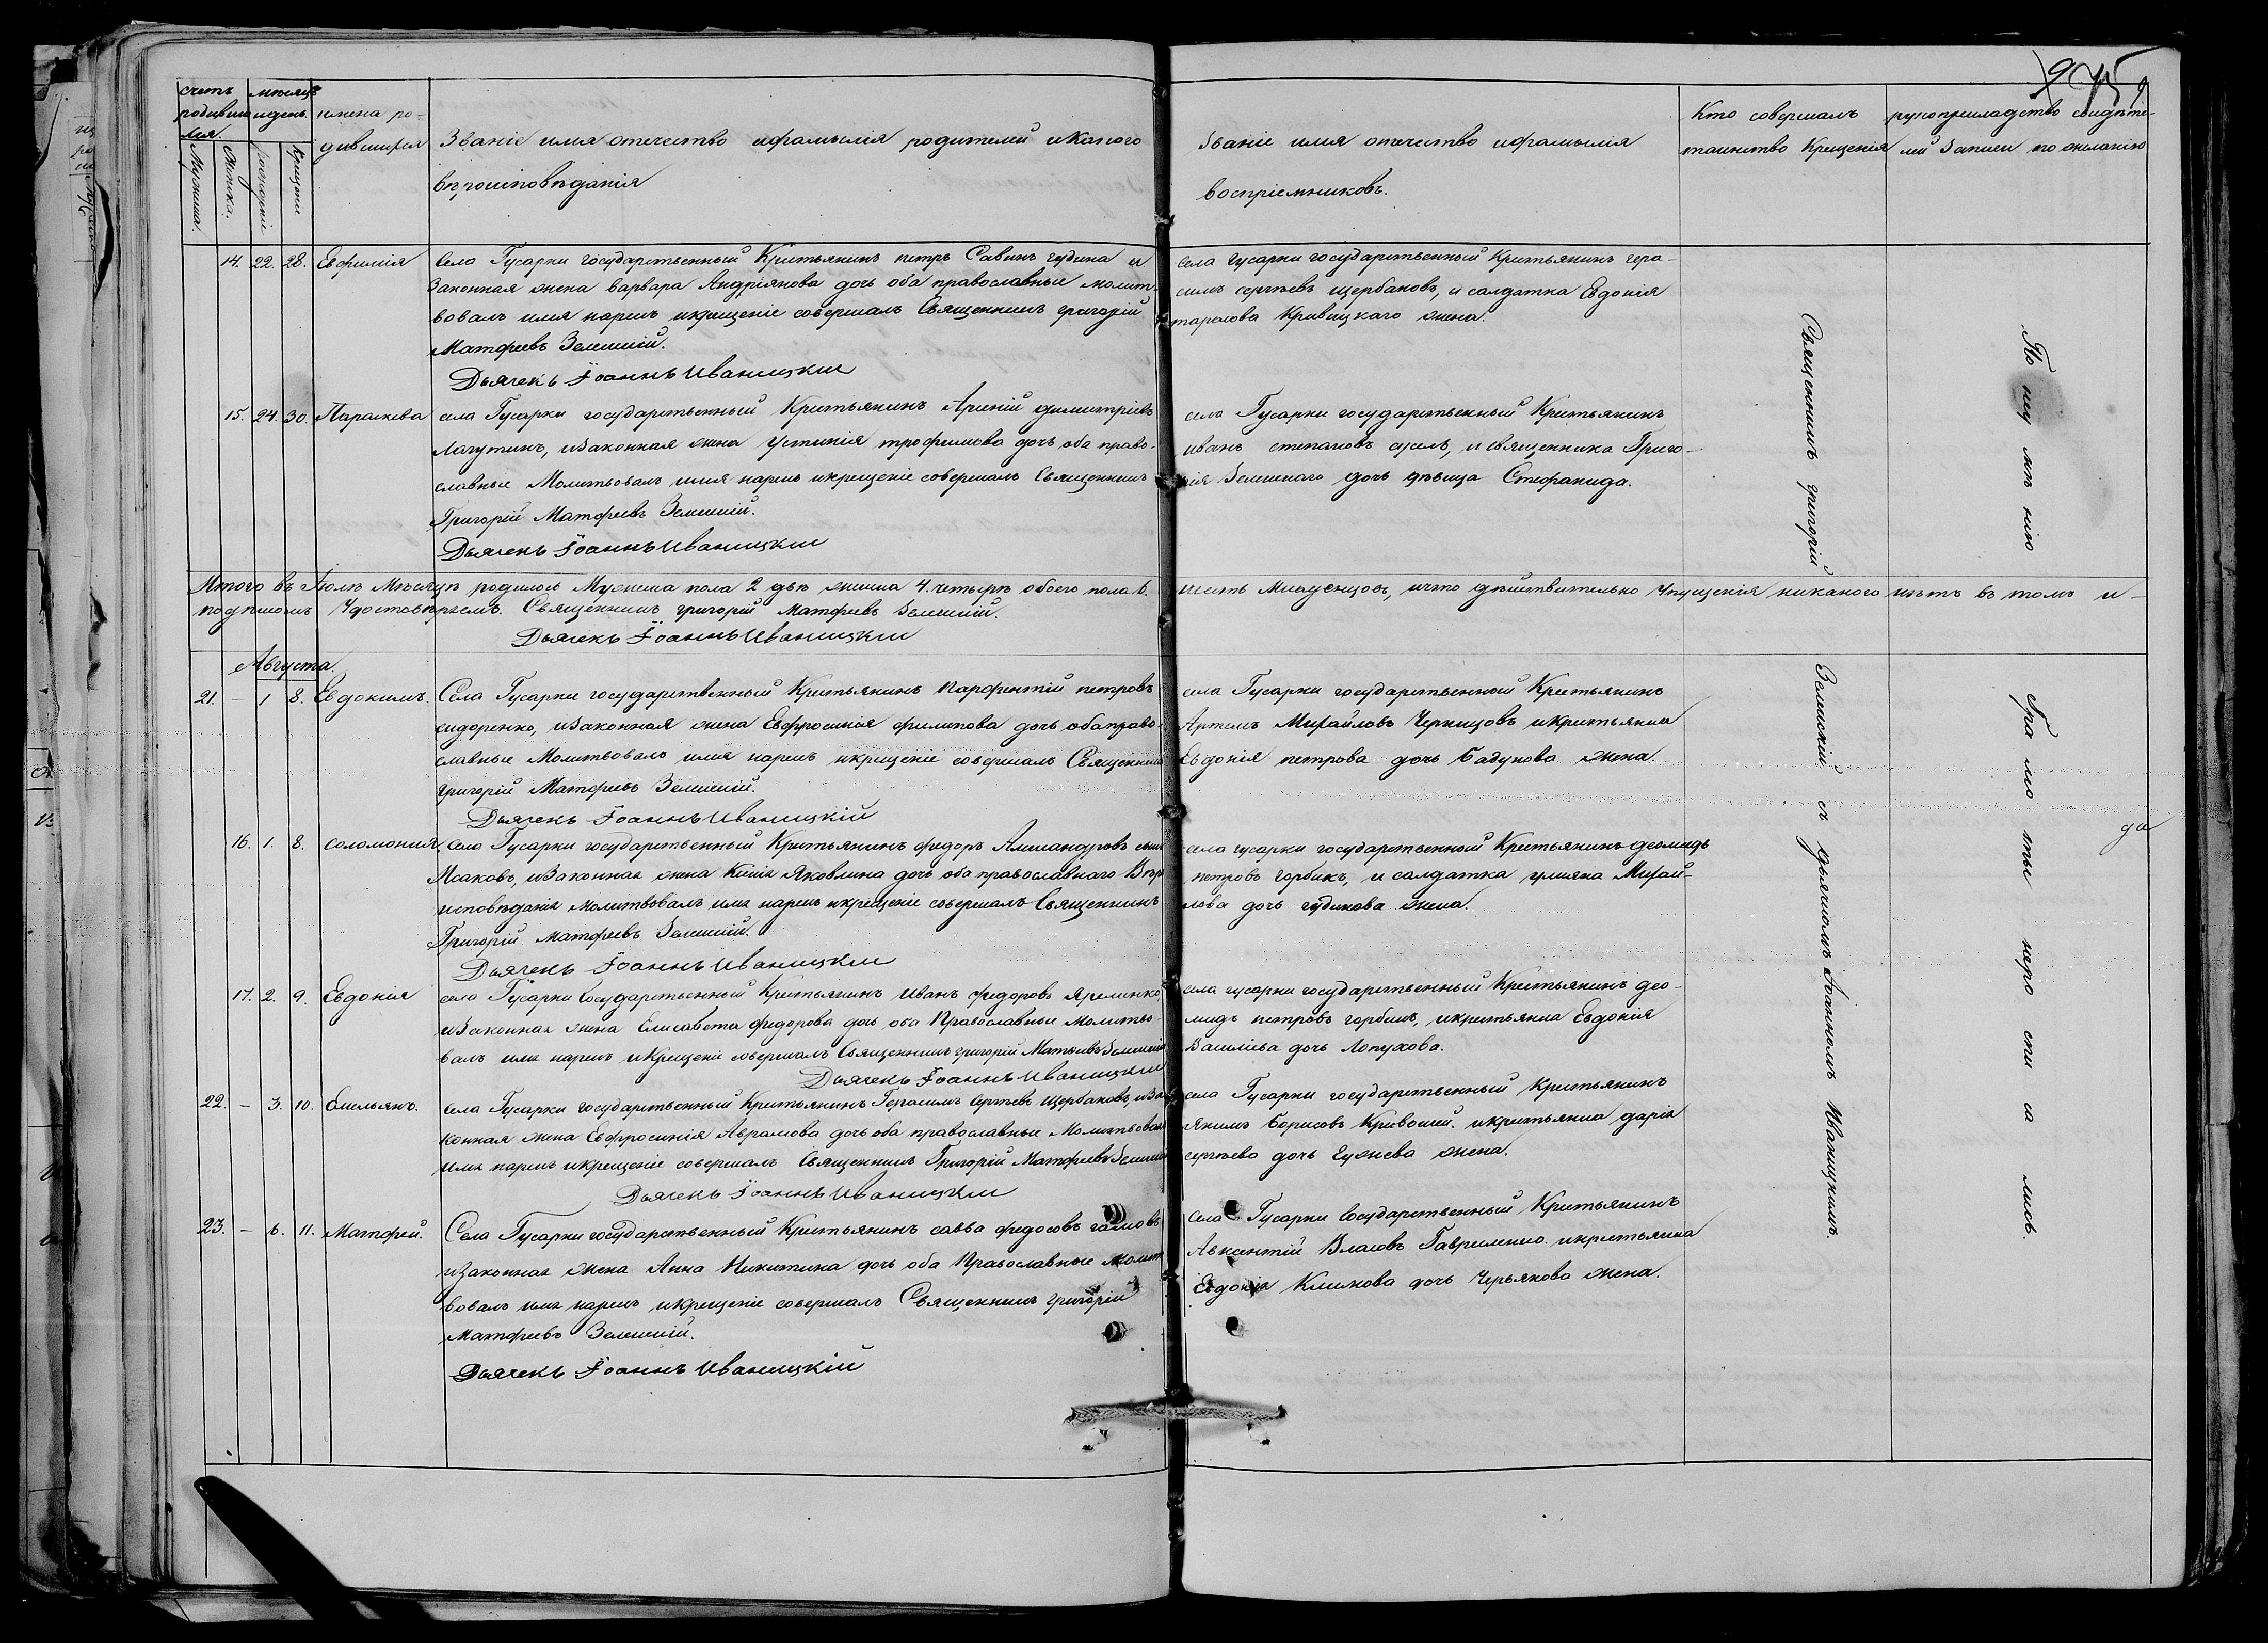 975
9
счетъ
родившихся.
мѣсяцъ
и день.
имена ро-
дившихся
Мужеска.
Женска.
рожденiе
Крещенiе
Званiе имя отечество ифамылiя родителей икакого
вѣроисповѣданiя
Званiе имя отечество ифамылiя
воспрiемниковъ.
Кто совершалъ
таинство Крещенiя
рукоприкладство свидѣте-
лей записи по желанiю
14. 22. 28. Евфимiя
Села Гусарки государственный Крестьянинъ петръ Савинъ гудина и
Законная жена варвара Андрiянова дочь оба православные молит
вовалъ имя нарекъ икрещенiе совершалъ Священникъ григорiй
Матфеевъ Зеленскiй.
Дьячекъ Iоаннъ Иваницкiй
села гусарки государственный Крестьянинъ гера-
симъ сергѣевъ щербаковъ, и салдатка Евдокiя
тарасова Кривицкаго жена.
15. 24. 30. Параскева
села Гусарки государственный Крестьянинъ Арсенiй димитрiевъ
Лагутинъ, изаконная жена Устинiя трофимова дочь оба право-
славные Молитвовалъ имя нарекъ икрещенiе совершалъ Священникъ
Григорiй Матфеевъ Зеленскiй.
Дьячекъ Iоаннъ Иваницкiй
села Гусарки государственный Крестьянинъ
иванъ степановъ, и священника Григо-
рiя Зеленскаго дочь дѣвица Стефанида.
Итого въ Iюлѣ Мѣсяцѣ родилось Мужеска пола 2 два женска 4. четыре обоего пола 6.
шесть Младенцовъ, ичто дѣйствительно Упущенiя никакого нѣтъ въ томъ и-
подписомъ Удостовѣряемъ. Священникъ григорiй матфеевъ Зеленскiй.
Дьячекъ Iоаннъ Иваницкiй
Августа.
21. - 1 8. Евдокимъ.
Села Гусарки государственный Крестьянинъ парфентiй петровъ
сидоренко, изаконная жена Евфросинiя филипова дочь обаправо
славные Молитвовалъ имя нарекъ икрещенiе совершалъ Священникъ
григорiй Матфеевъ Зеленскiй.
Дьячекъ Iоаннъ Иваницкiй
села Гусарки государственный Крестьянинъ
Артемъ Михайловъ Чернцовъ икрестьянка
Евдокiя петрова дочь Бадунова жена.
16. 1. 8. соломония
Села Гусарки государственный Крестьянинъ федоръ Александровъ сынъ
Исаковъ, изаконная жена Ксенiя Яковлина дочь оба православнаго Вѣро
исповѣданiя молитвовалъ имя нарекъ икрещенiе совершалъ Священникъ
Григорiй матфеевъ Зеленскiй.
Дьячекъ Iоаннъ Иваницкiй
села гусарки государственный Крестьянинъ деомидъ
петровъ горбикъ, и салдатка улияна Михай-
лова дочь гудинова жена.
17. 2. 9. Евдокiя
села Гусарки Государственный Крестьянинъ иванъ федоровъ Яременко
изаконная жена Елисавета федорова дочь оба Православные молитво-
валъ имя нарекъ икрещенiе совершалъ Священникъ григорiй Матвеевъ Зеленскiй
Дьячекъ Iоаннъ Иваницкiй
села гусарки государственный Крестьянинъ део-
мидъ петровъ горбикъ, икрестьянка Евдокiя
Василiева дочь Лопухова.
22. - 3. 10. Емельянъ.
села Гусарки государственный Крестьянинъ Герасимъ Сергѣевъ Щербаковъ, иза
конная жена Евфросинiя Аврамова дочь оба православные Молитвовалъ
имя нарекъ икрещенiе совершалъ Священникъ Григорiй Матфеевъ Зеленскiй
Дьячекъ Iоаннъ Иваницкiй
села Гусарки государственный Крестьянинъ
Якимъ Борисовъ Кривошей. икрестьянка дарiя
сергѣева дочь Гужнева жена.
23. - 6. 11. Матфей.
Села Гусарки государственный Крестьянинъ савва федосовъ гамовъ
изаконная жена Анна Никитина дочь оба Православные молит
вовалъ имя нарекъ икрещенiе совершалъ Священникъ григорiй
Матфеевъ Зеленскiй.
Дьячекъ Iоаннъ Иваницкiй
Села Гусарки Государственный Крестьянинъ
Авксентiй Власовъ Гавриленко. икрестьянка
Евдокiя Климова дочь Черьякова жена.
Священникъ григорiй Зеленскiй съ дьячкомъ Iоанномъ Иваницкимъ.
По неу мѣ нiю Гра мо ты неро спи са лись.
да